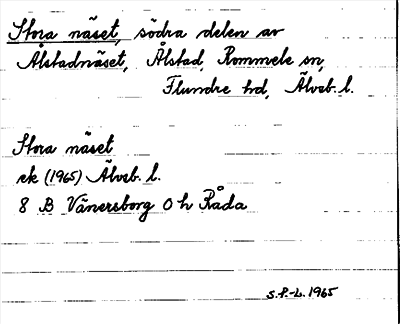 Stora näset, södra delen av
Ålstadnäset, Ålstad, Rommele sn,
Flundre hd, Älvsb. l.
Stora näset
ek (1965) Älvsb. l.
8 B Vänersborg 0 h Råda
S.F.-L. 1965